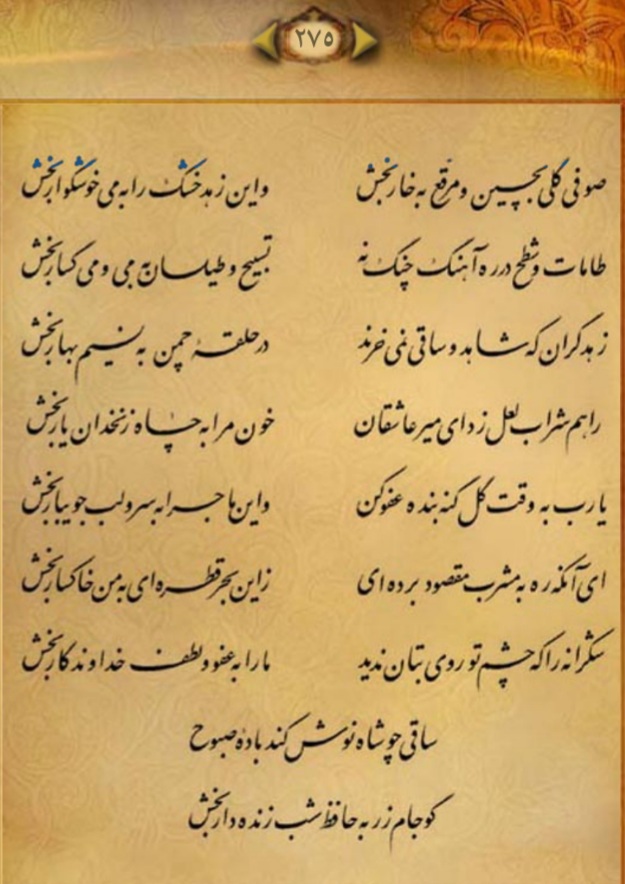 ۲۷۵
صوفی گلی بچین و مرقع به خار بخش واین زهد خشک را به می خوشگوار بخش
طامات و شطح در ره آهنگ چنگ نه تسبیح و طیلسان به می و می گسار بخش
زهد گران که شاهد و ساقی نمی خرند در حلقهٔ چمن به نسیم بهار بخش
راهم شراب لعل زد ای میر عاشقان خون مرا به چاه زنخدان یار بخش
یا رب به وقت گل گنه بنده عفو کن واین ماجرا به سرو لب جویبار بخش
ای آنکه ره به مشرب مقصود برده ای زاین بحر قطره ای به من خاکسار بخش
شکرانه را که چشم تو روی بتان ندید ما را به عفو و لطف خداوندگار بخش
ساقی چو شاه نوش کند بادهٔ صبوح
گو جام زر به حافظ شب زنده دار بخش